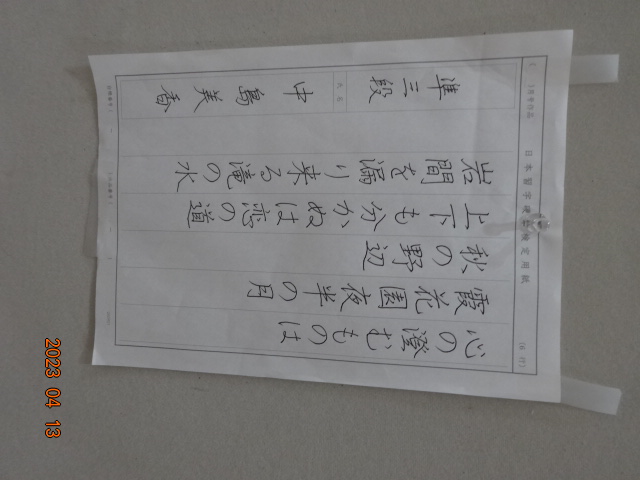 日本習字硬筆検定用紙
心の澄むものは
霞花園夜半の月
秋の野辺
上下も分かぬは恋の道
岩間を漏り来る滝の水
準三段 氏名 中島美香
2023 04 13